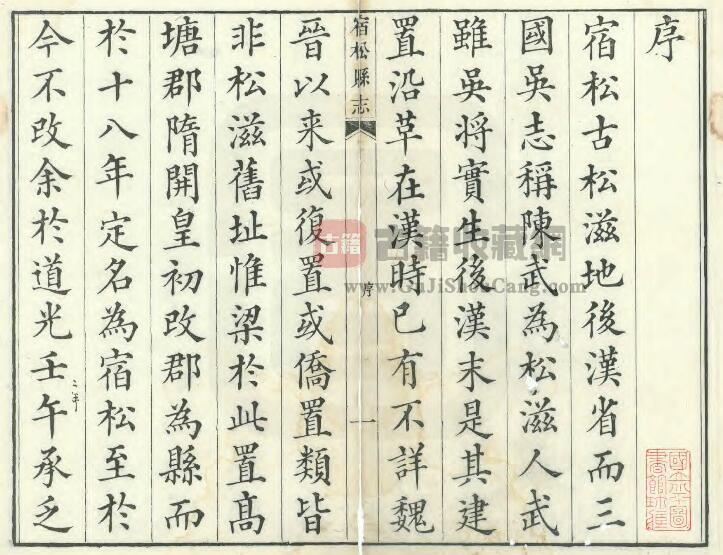 序
宿松古松滋地後漢省而三
國吳志稱陳武為松滋人武
雖吳将實生後漢末是其建
置沿革在漢時已有不詳魏
宿松縣志
序
一
晉以来或復置或僑置類皆
非松滋舊址惟梁於此置髙
塘郡隋開皇初改郡為縣而
於十八年定名為宿松至於
今不改余於道光壬午承乏
二年
古籍
古籍收藏網
www.GuJiShouCang.com